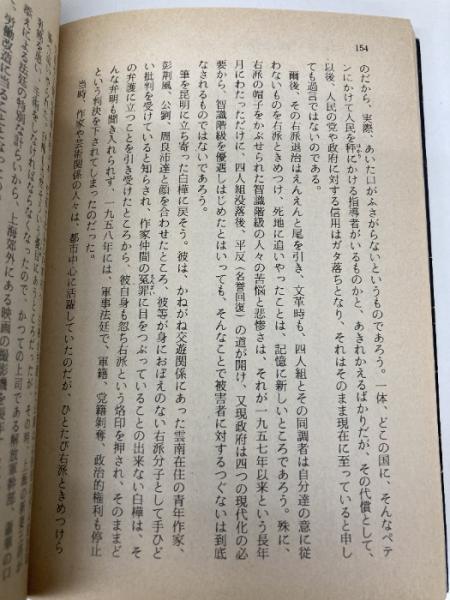 154
のだから、実際、あいた口がふさがらないというものであろう。一体、どこの国に、そんなペテ
ンにかけて人民を秤にかける指導者がいるものかと、あきれかえるばかりだが、その代償として、
以後、人民の党や政府に対する信用はガタ落ちとなり、それはそのまま現在に至っていると申し
ても過言ではないのである。
爾後、その右派退治はえんえんと尾を引き、文革時も、四人組とその同調者は自分達の意に従
わないものを右派ときめつけ、死地に追いやったことは、記憶に新しいところであろう。殊に、
右派の帽子をかぶせられた智識階級の人々の苦悩と悲惨さは、それが一九五七年以来という長年
月にわたっただけに、四人組没落後、平反(名誉回復)の道が開け、又現政府は四つの現代化の必
要から、智識階級を優遇しはじめたとはいっても、そんなことで被害者に対するつぐないは到底
なされるものではないであろう。
筆を昆明に立ち寄った白樺に戻そう。彼は、かねがね交遊関係にあった雲南在住の青年作家、
彭荆風、公劉、周良沛達と顔を合わせたところ、彼等が身におぼえのない右派分子として手ひど
い批判を受けていると知らされ、作家仲間の冤罪に目をつぶっていることの出来ない白樺は、そ
の弁護に立つことを引き受けたところから、彼自身も忽ち右派という烙印を押され、そのままど
んな弁明も聞きいれられず、一九五八年には、軍事法廷で、軍籍、党籍剝奪、政治的権利も停止
という判決を下されてしまったのだった。
当時、作家や芸術関係の人々は、都市中心に活躍していたのだが、ひとたび右派ときめつけら